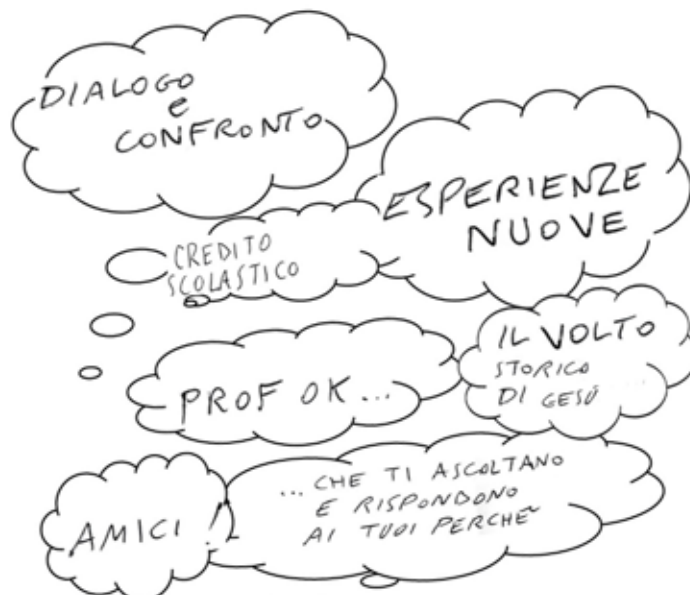 DIALOGO
e
CONFRONTO
ESPERIENZE
NUOVE
CREDITO
SCOLASTICO
IL VOLTO
STORICO
DI GESÚ ....
PROF OK...
...CHE TI ASCOLTANO
E RISPONDONO
AI TUOI PERCHE~
AMICI!